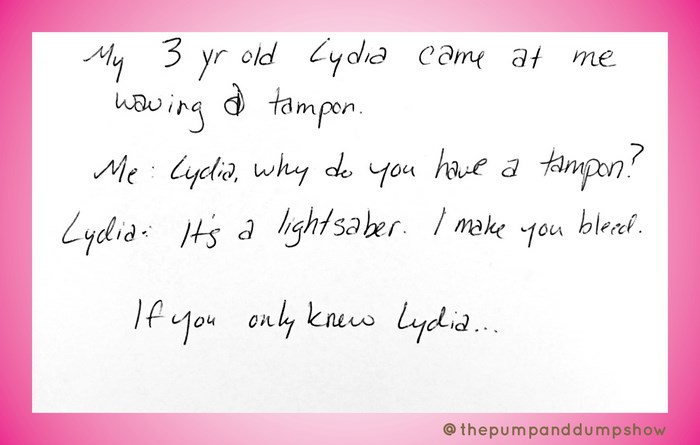 My 3 yr old Lydia came at me
waving a tampon.
Me: Lydia, why do you have a tampon?
Lydia: It's a lightsaber. I make you bleed.
If you only knew Lydia...
@thepumpanddumpshow